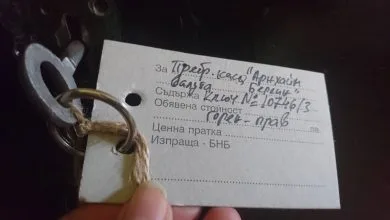 За Преф. каса "Арнхайм
балува Берлин"
Съдържа ключ № 10746/3
Обявена стойност
Горен - прав лв.
Ценна пратка
Изпраща - БНБ